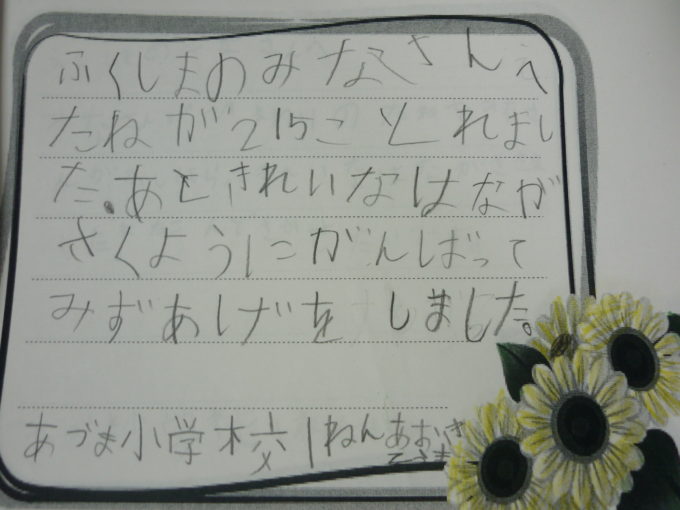 ふくしまのみなさんへ
たねが215ことれまし
た。あときれいなはなが
さくようにがんばって
みずあげをしました。
あづま小学校1ねん